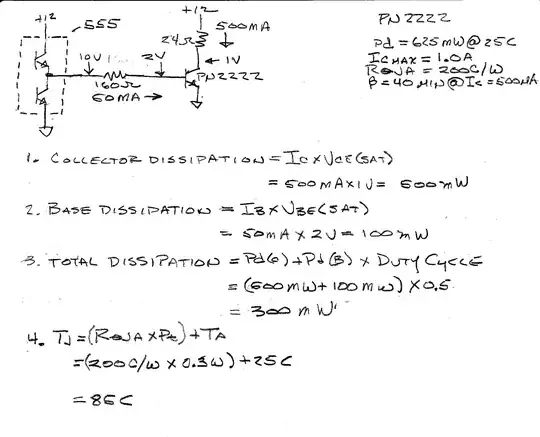 +12
555
+12
500MA
24Ω
10V
2V
1V
PN2222
160Ω
50MA →
PN2222
Pd = 625mW@25C
ICMAX = 1.0A
RΘJA = 200C/W
β = 40 MIN @ IC = 500MA
1. COLLECTOR DISSIPATION = IC X VCE(SAT)
= 500MA X 1V = 500mW
2. BASE DISSIPATION = IB X VBE(SAT)
= 50MA X 2V = 100mW
3. TOTAL DISSIPATION = Pd(C) + Pd(B) X DUTY CYCLE
= (500mW + 100mW) X 0.5
= 300mW
4. TJ = (RΘJA X Pt) + TA
= (200C/W X 0.3W) + 25C
= 85C